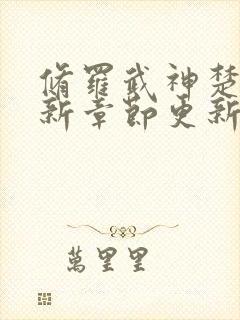 脩羅武神楚
新章節更新
萬里里